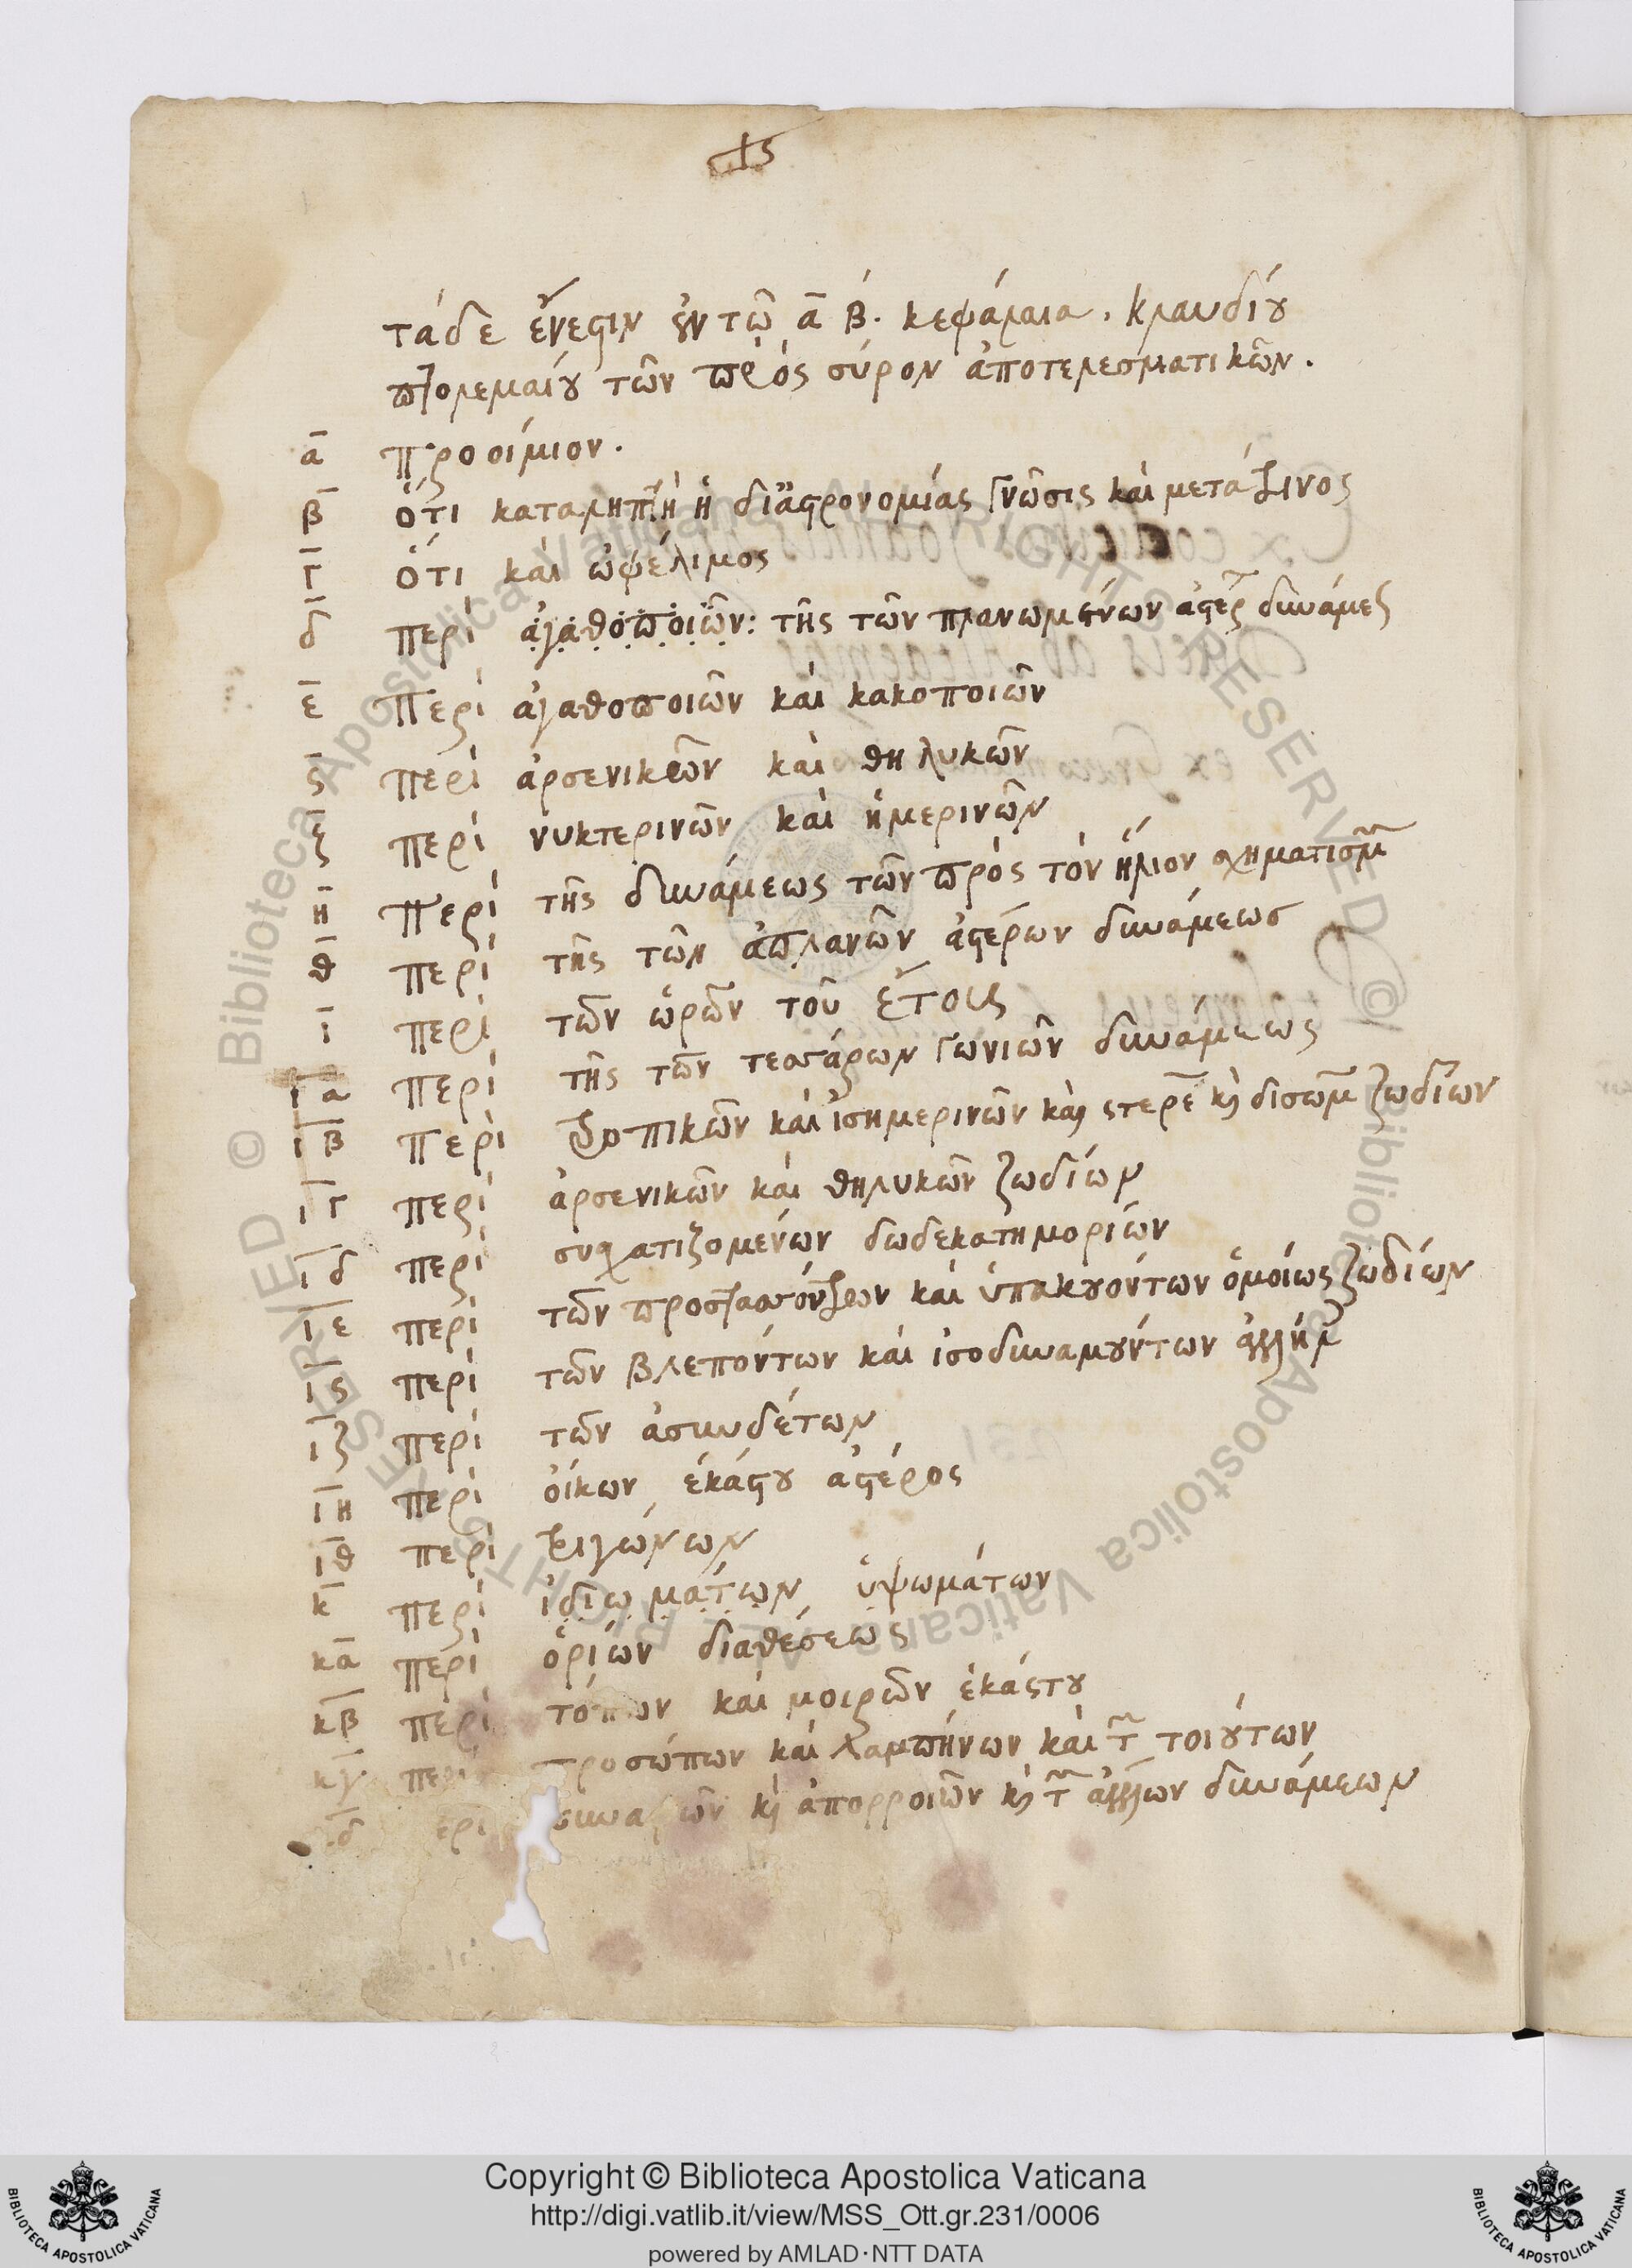 τάδε ἔνεστιν ἐν τῶ α β. κεφάλαια. κλαυδίου
πτολεμαίου τῶν πρὸς σύρον ἀποτελεσματικῶν.
α προοίμιον.
β ὅτι καταληπτὴ ἡ δι ἀστρονομίας γνῶσις καὶ μετά τινος
γ ὅτι καὶ ὠφέλιμος
δ περὶ ἀγαθοποιῶν: τῆς τῶν πλανωμένων ἀστέρ δυνάμεως
ε περὶ ἀγαθοποιῶν καὶ κακοποιῶν
ς περὶ ἀρσενικῶν καὶ θηλυκῶν
ζ περὶ νυκτερινῶν καὶ ἡμερινῶν
η περὶ τῆς δυνάμεως τῶν πρὸς τὸν ἥλιον σχηματισμ
θ περὶ τῆς τῶν ἀπλανῶν ἀστέρων δυνάμεως
ι περὶ τῶν ὡρῶν τοῦ ἔτους
ια περὶ τῆς τῶν τεσσάρων γωνιῶν δυνάμεως
ιβ περὶ τροπικῶν καὶ ἰσημερινῶν καὶ στερε καὶ δισωμ ζωδίων
ιγ περὶ ἀρσενικῶν καὶ θηλυκῶν ζωδίων
ιδ περὶ συσχατιζομένων δωδεκατημορίων
ιε περὶ τῶν προστασσόντων καὶ ὑπακουόντων ὁμοίως ζωδίων
ις περὶ τῶν βλεπόντων καὶ ἰσοδυναμούντων ἀλλήλ
ιζ περὶ τῶν ἀσυνδέτων
ιη περὶ οἴκων ἑκάστου ἀστέρος
ιθ περὶ τριγώνων
κ περὶ ἰδιωμάτων ὑψωμάτων
κα περὶ ὁρίων διαθέσεως
κβ περὶ τόπων καὶ μοιρῶν ἑκάστου
κγ περὶ προσώπων καὶ λαμπήνων καὶ τ τοιούτων
δ ερὶ συναφῶν καὶ ἀπορροιῶν καὶ τ ἄλλων δυνάμεων
© Biblioteca Apostolica Vaticana ALL RIGHTS RESERVED
Copyright © Biblioteca Apostolica Vaticana
http://digi.vatlib.it/view/MSS_Ott.gr.231/0006
powered by AMLAD·NTT DATA
BIBLIOTECA APOSTOLICA VATICANA
BIBLIOTECA APOSTOLICA VATICANA